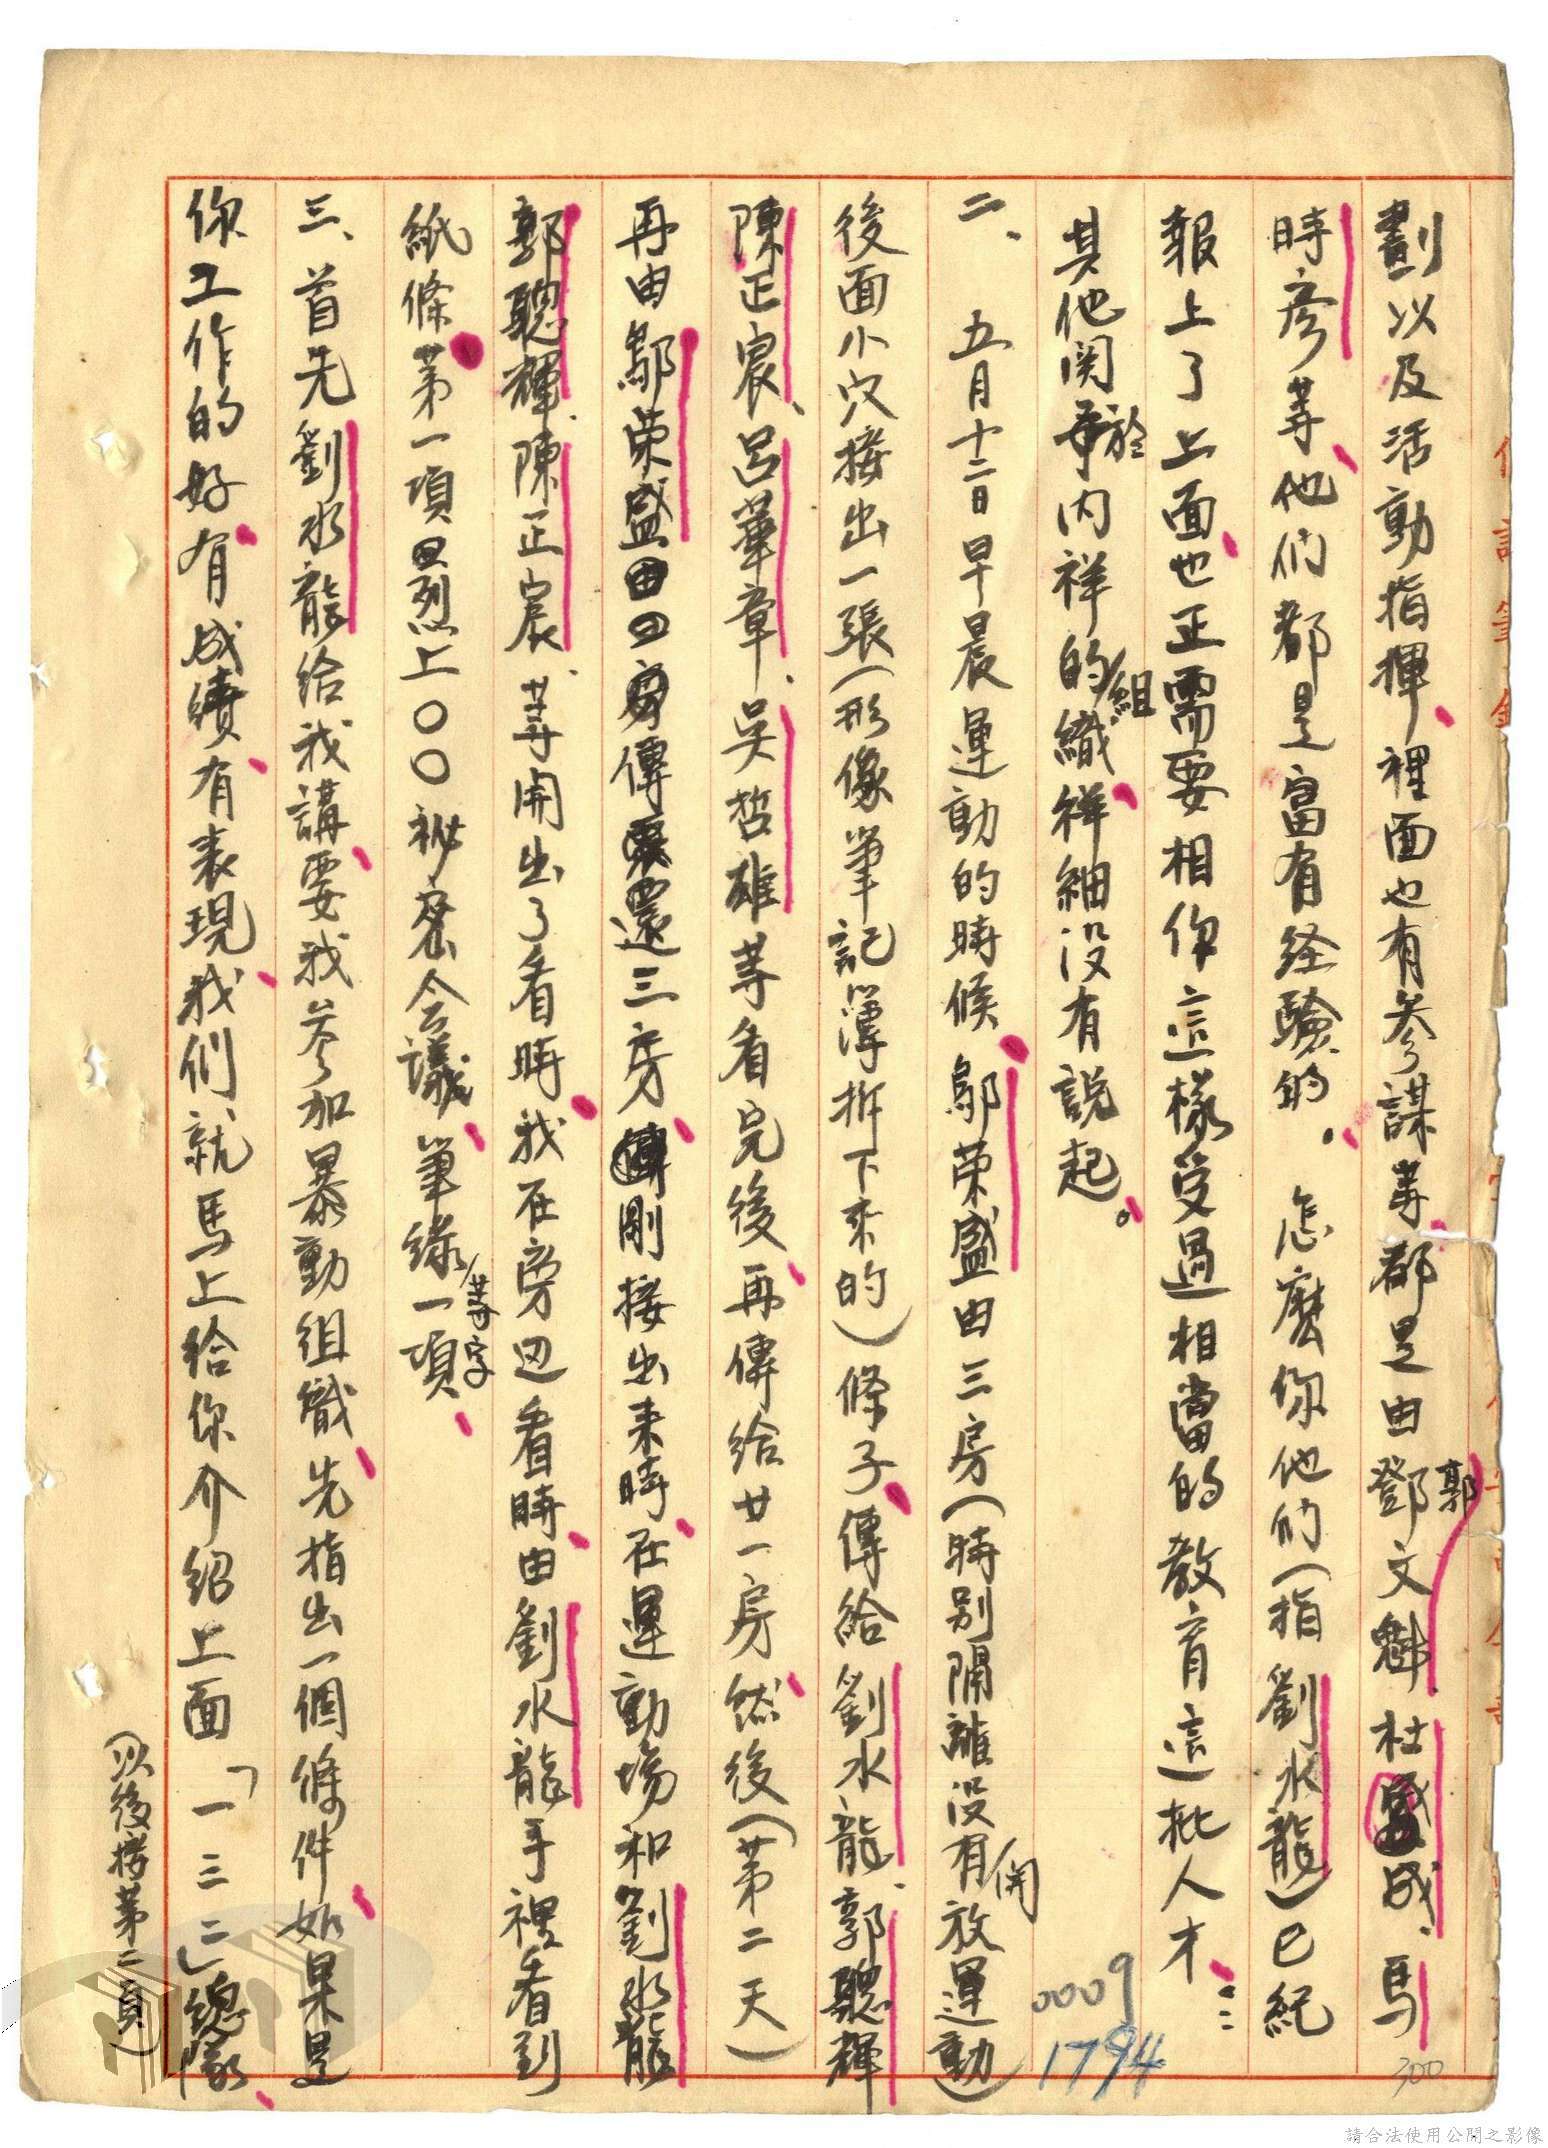 劃以及活動指揮，裡面也有參謀等，都是由鄧文魁、郭杜盛成、馬
時彥等，他们都是富有经驗的。怎麽你他们（指劉水龍）已紀
報上了上面，也正需要相你這樣受過相當的教育這一批人才，……
其他関於內祥的組織，祥細没有説起。
二、五月十二日早晨運動的時候，鄔荣盛由三房（時别隔離没有開放運動）
後面小穴接出一張（形像筆記簿拆下来的）條子，傳給劉水龍、郭聰輝
陳正宸、呂華章、吴哲雄等看完後，再傳給廿一房，然後（第二天）
再由鄔荣盛傳還三房，剛接出来時，在運動場和劉水龍
郭聰輝、陳正宸、等開出了看時，我在旁边看時，由劉水龍手裡看到
紙條第一項烈上〇〇〇祕密会議，筆錄一項等字，
三、首先劉水龍給我講，要我参加暴動組織，先指出一個條件，如果是
你工作的好，有成績，有表現，我们就馬上給你介紹上面「一三二」總隊，
（以後接第二頁）
0009
1794
300
請合法使用公開之影像